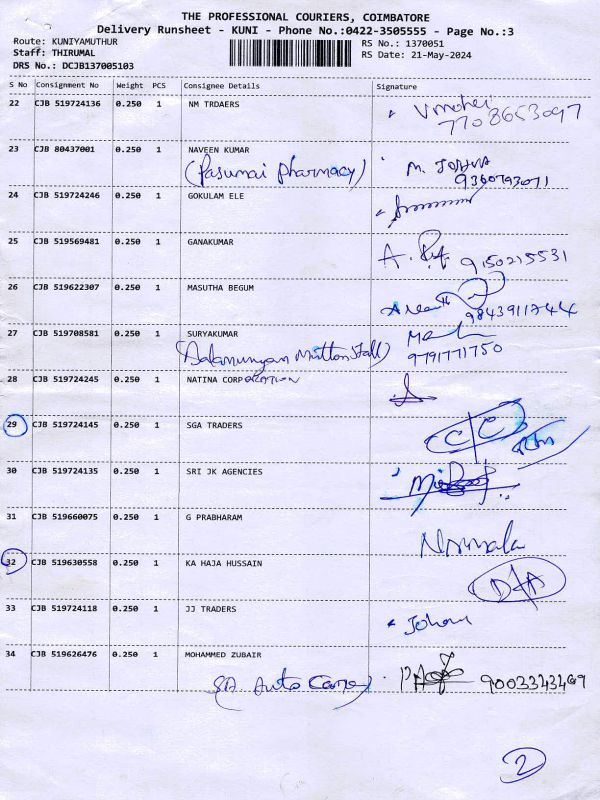 THE PROFESSIONAL COURIERS, COIMBATORE
Delivery Runsheet - KUNI - Phone No.:0422-3505555 - Page No.:3
Route: KUNIYAMUTHUR RS No.: 1370051
Staff: THIRUMAL RS Date: 21-May-2024
DRS No.: DCJB137005103
S No Consignment No Weight PCS Consignee Details Signature
22 CJB 519724136 0.250 1 NM TRDAERS
7708653097
23 CJB 80437001 0.250 1 NAVEEN KUMAR
(Pasumai pharmacy) 9360793071
24 CJB 519724246 0.250 1 GOKULAM ELE
25 CJB 519569481 0.250 1 GANAKUMAR
9150215531
26 CJB 519622307 0.250 1 MASUTHA BEGUM
27 CJB 519708581 0.250 1 SURYAKUMAR
Mutton Stall) 9791771750
28 CJB 519724245 0.250 1 NATINA CORPORATION
29 CJB 519724145 0.250 1 SGA TRADERS C/C
30 CJB 519724135 0.250 1 SRI JK AGENCIES
31 CJB 519660075 0.250 1 G PRABHARAM
Nirmala
32 CJB 519630558 0.250 1 KA HAJA HUSSAIN
D/A
33 CJB 519724118 0.250 1 JJ TRADERS
34 CJB 519626476 0.250 1 MOHAMMED ZUBAIR
SA Auto Care) 9003343469
2